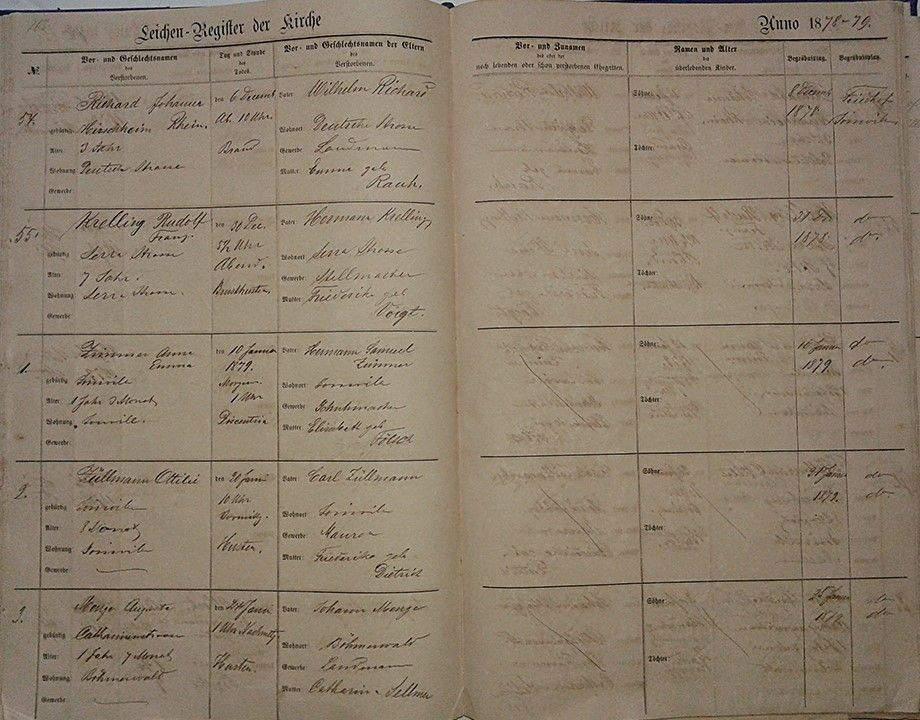 Leichen-Register der Kirche
Anno 1878-79.
№
Vor- und Geschlechtsnamen des Verstorbenen.
Tag und Stunde des Todes.
Vor- und Geschlechtsnamen der Eltern des Verstorbenen.
Vor- und Zunamen des oder der noch lebenden oder schon verstorbenen Ehegatten.
Namen und Alter der überlebenden Kinder.
Begräbnißtag.
Begräbnißplatz.
54.
Richard Johannes
gebürtig Hirschheim Rhein.
Alter: 3 Jahr
Wohnung: Deutsch Strasse
Gewerbe:
den 6 Decemb
Ab. 10 Uhr.
Vater: Wilhelm Richard
Wohnort: Deutsche Strasse
Gewerbe: Landmann
Mutter: Emma geb
Rauh.
Söhne:
Töchter:
8 Decemb
1878
Friedhof
Joinville
55.
Krelling Rudolf
Franz.
gebürtig Serra Strasse
Alter: 7 Jahr.
Wohnung: Serra Strasse.
Gewerbe:
den 30 Dec.
Uhr
Abend.
Vater: Hermann Krelling
Wohnort: Serra Strasse
Gewerbe: Stellmacher
Mutter: Friederike geb
Voigt.
Söhne:
Töchter:
31 De
1878
do
do.
1.
Zimmer Anna
Emma
gebürtig Joinville
Alter: 1 Jahr 3 Monat
Wohnung: Joinville.
Gewerbe:
den 10 Januar
1879.
Morgen
1 Uhr
Vater: Hermann Samuel
Zimmer
Wohnort: Joinville
Gewerbe: Schuhmacher
Mutter: Elisabeth geb
Fölsch
Söhne:
Töchter:
10 Januar
1879
do
do.
2.
Züllmann Ottilie
gebürtig Joinville
Alter: 8 Monat
Wohnung: Joinville
Gewerbe:
den 20 Janr
10 Uhr
Vormittg.
Husten.
Vater: Carl Züllmann
Wohnort: Joinville
Gewerbe: Maurer
Mutter: Friederike geb
Dietrich
Söhne:
Töchter:
21 Januar
1879.
do
do
3.
Menge Auguste
gebürtig Catharinenstrasse
Alter: 1 Jahr 7 Monat
Wohnung: Böhmerwald
Gewerbe:
den 24 Janr
1 Uhr Nachmittg
Husten
Vater: Johann Menge
Wohnort: Böhmerwald
Gewerbe: Landmann
Mutter: Catharina Sellmer
Söhne:
Töchter:
25 Januar
1879
do
do